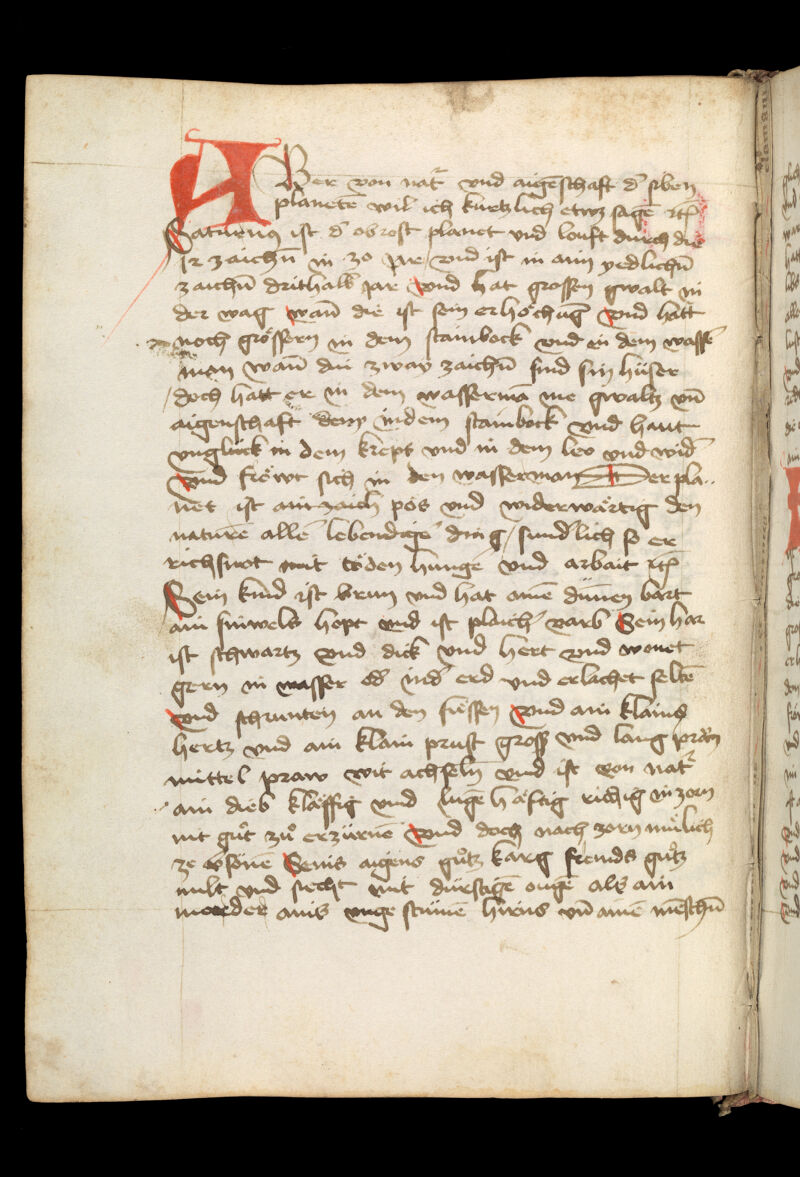 ABer von nat͛ vnd aigēschaft d͛ siben
planetē wil ich kurtzlich etwz sagē
Saturnus ist d͛ obrost planet vnd louft durch die
ir zaichn̄ in 30 jar vnd ist in aim yedlichn̄
zaichn̄ drithalb jar vnd hat grossen gwalt in
der wag wan̄ die ist sein erhöchūg vnd hatt
noch grössern in dem stainbock vnd in dem wasser
man wan̄ die zway zaichn̄ sind sin hüser
doch hatt er in dem wasserman̄ me gwaltz vn̄
aigenschaft denn in dem stainbock vnd haut
vnglück in dem kreps vnd in dem leo vnd wid͛
vnd fröwt sich in den wasserman Der pla
net ist ain zaich pös vnd widerwärtig den
naturē allē lebendigē ding / sund͛lich so er
richsnot mit töden hunge͛ vnd arbait
Sein kind ist brun vnd hat ainē dün̄en bart
ain sinwels hopt vnd ist plaich͛ varb Sein har
ist schwartz vnd dick vnd hert vnd wonet
gern in wasser od͛ in d͛ erd vnd erlachet seltē
vnd schrunten an den füssen vnd ain klains
hertz vnd ain klain prust gross vnd lang
mittel praw wit achseln vnd ist von nat͛
ain dieb kläffig vnd lugē häftig richig in zorn
nit gůt zů erzürnē vnd doch nach zorn mülich
ze v͛sönē Seins aigens gůtz karg frends gůtz
milt vnd sicht mit dürstigē ougē als ain
morder ains vnge stümē hirns vn̄ ainē mēschn̄